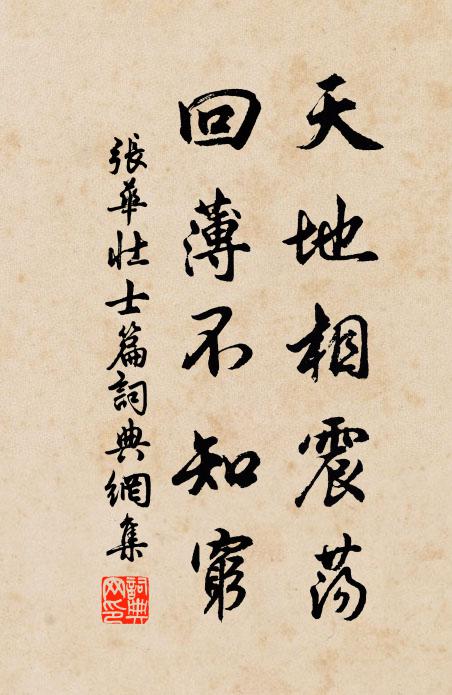 天地相震荡
回薄不知窮
張華壮士篇詞典網集
詞典網印